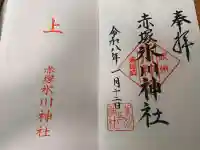 奉拝
赤塚氷川神社
令和八年一月十二日
上
赤塚
氷川神社